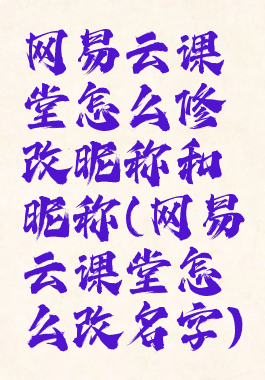 网易云课
堂怎么修
改昵称和
昵称(网易
云课堂怎
么改名字)